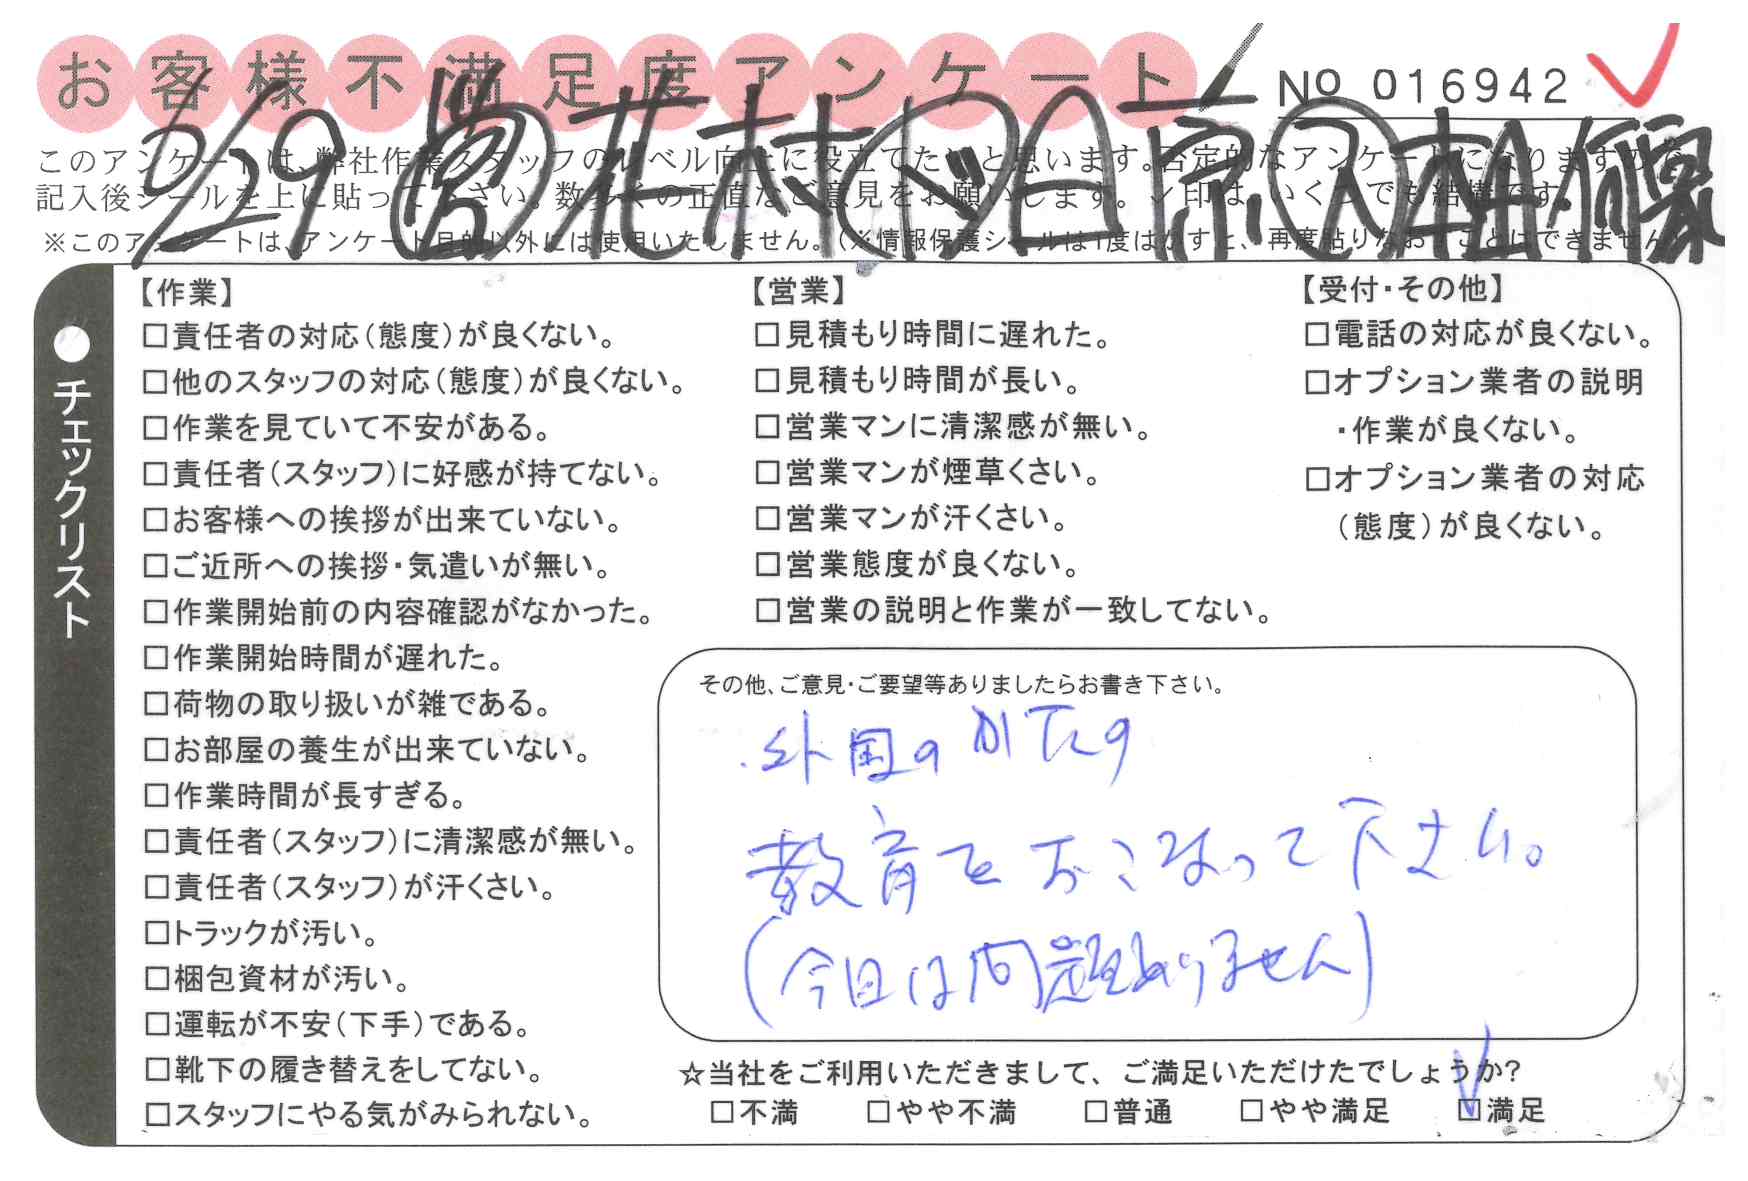 お客様不満足度アンケート
No 016942
このアンケートは、弊社作業スタッフのレベル向上に役立てたいと思います。否定的なアンケートになりますので
記入後シールを上に貼って下さい。数多くの正直なご意見をお願いします。✓印は、いくつでも結構です。
※このアンケートは、アンケート目的以外には使用いたしません。(※情報保護シールは1度はがすと、再度貼りなおすことはできません
/29 営 花村
●チェックリスト
【作業】
□責任者の対応(態度)が良くない。
□他のスタッフの対応(態度)が良くない。
□作業を見ていて不安がある。
□責任者(スタッフ)に好感が持てない。
□お客様への挨拶が出来ていない。
□ご近所への挨拶・気遣いが無い。
□作業開始前の内容確認がなかった。
□作業開始時間が遅れた。
□荷物の取り扱いが雑である。
□お部屋の養生が出来ていない。
□作業時間が長すぎる。
□責任者(スタッフ)に清潔感が無い。
□責任者(スタッフ)が汗くさい。
□トラックが汚い。
□梱包資材が汚い。
□運転が不安(下手)である。
□靴下の履き替えをしてない。
□スタッフにやる気がみられない。
【営業】
□見積もり時間に遅れた。
□見積もり時間が長い。
□営業マンに清潔感が無い。
□営業マンが煙草くさい。
□営業マンが汗くさい。
□営業態度が良くない。
□営業の説明と作業が一致してない。
【受付・その他】
□電話の対応が良くない。
□オプション業者の説明
・作業が良くない。
□オプション業者の対応
(態度)が良くない。
その他、ご意見・ご要望等ありましたらお書き下さい。
・外国のかたの
教育をおこなって下さい。
(今日は問題ありません)
☆当社をご利用いただきまして、ご満足いただけたでしょうか?
□不満 □やや不満 □普通 □やや満足 ☑満足